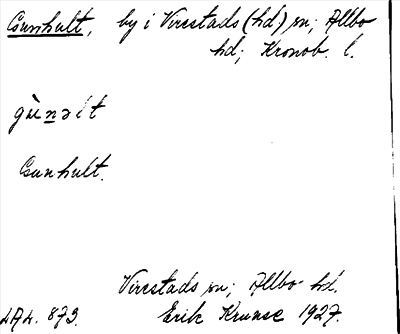 Gunnhult, by i Virestads (hd) sn; Allbo
hd; Kronob. l.
gùnəlt
Gunhult.
Virestads sn; Allbo hd.
Erik Krunse 1927.